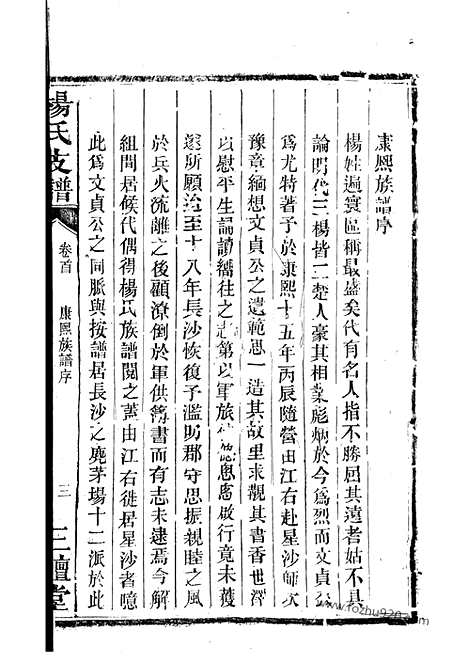 康熙族譜序
楊姓遍寰區稱最盛矣代有名人指不勝屈其遠者姑不具
論明代三楊皆二楚人豪其相業彪炳於今爲烈而文貞公
爲尤特著予於康熙十五年丙辰隨營由江右赴星沙師次
豫章緬想文貞公之遺範思一造其故里求觀其書香世澤
以慰平生誦讀嚮往之志第以軍旅倥傯悤悤啟行竟未獲
遂所願洎至十八年長沙恢復予濫叨郡守思振親睦之風
於兵火流離之後顧潦倒於軍供簿書而有志未逮焉今解
組間居候代偶得楊氏族譜閱之蓋由江右徙居星沙者噫
此爲文貞公之同脈與按譜居長沙之麂茅場十二派於此
楊氏支譜
卷首
康熙族譜序
三
三鱣堂
www.fozhu920.com